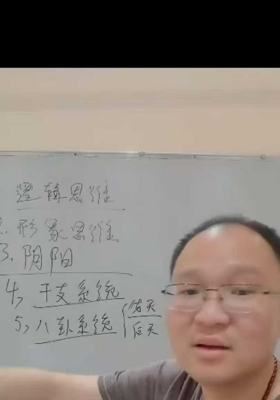 逻辑思维
形象思维
3.阴阳
4,干支系统
5,八卦系统{先天
后天